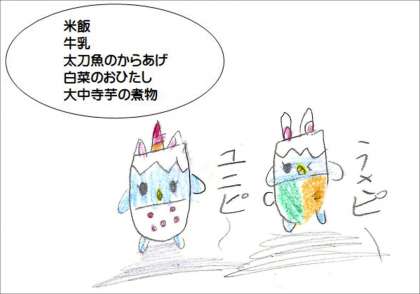 米飯
牛乳
太刀魚のからあげ
白菜のおひたし
大中寺芋の煮物
ユニピ
ラメピ